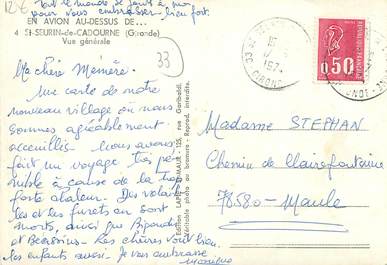 12€
Tout le monde se joint à moi
pour vous embrasser bien fort.
EN AVION AU-DESSUS DE...
4 St-SEURIN-de-CADOURNE (Gironde)
Vue générale
33
Ma chère Mémère.
Une carte de notre
nouveau village où nous
sommes agréablement
accueillis. Nous avons
fait un voyage très pé-
nible à cause de la trop
forte chaleur. Des volail-
les et les furets en sont
morts, ainsi que
et Les chèvres vont bien.
les enfants aussi. Je vous embrasse
Monique
Edition LAPIE, St-MAUR - 125, rue Garibaldi.
Véritable photo au bromure - Reprod. interdite.
33
GIRONDE
0,50
REPUBLIQUE FRANÇAISE
Madame STEPHAN
Chemin de Clairefontaine
78580 - Maule